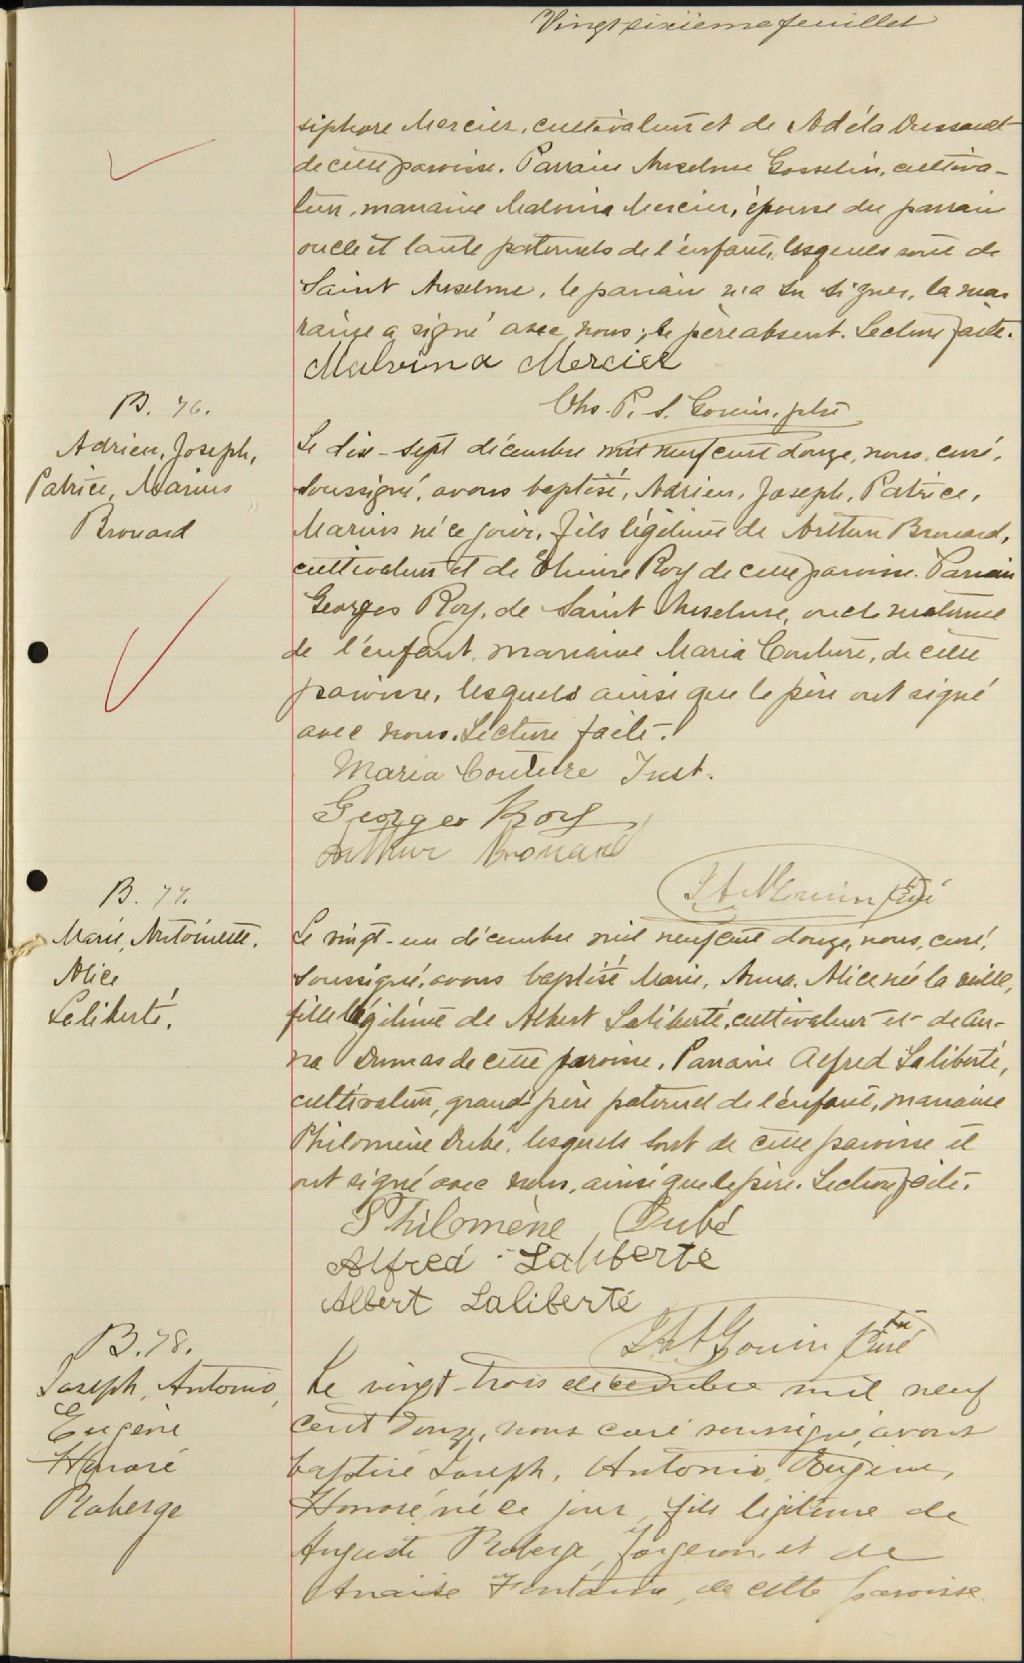 Vingt sixième feuillet
siphore Mercier, cultivateur et de Adéla Dussault
de cette paroisse. Parrain Anselme Gosselin, cultiva-
teur, marraine Malvina Mercier, épouse du parrain
oncle et tante paternels de l'enfant, lesquels sont de
Saint Anselme, le parrain n'a su signer, la mar
raine a signé avec nous, le père absent. Lecture faite.
Malvina Mercier
Chs. P. S. Gouin, ptre
B. 76.
Adrien, Joseph,
Patrice, Marius
Brouard
Le dix-sept décembre mil neuf cent douze, nous, curé,
soussigné, avons baptisé, Adrien, Joseph, Patrice,
Marius né ce jour, fils légitime de Arthur Brouard,
cultivateur et de Roy de cette paroisse. Parrain
Georges Roy, de Saint Anselme, oncle maternel
de l'enfant, marraine Maria Couture, de cette
paroisse, lesquels ainsi que le père ont signé
avec nous. Lecture faite.
Maria Couture Inst.
Georges Roy
Arthur Brouard
Gouin ptre Curé
B. 77.
Marie, Antoinette,
Alice
Laliberté.
Le vingt-un décembre mil neuf cent douze, nous, curé,
soussigné, avons baptisé Marie, Anna, Alice née la veille,
fille légitime de Albert Laliberté, cultivateur et de An-
na Dumas de cette paroisse. Parrain Alfred Laliberté,
cultivateur, grand'père paternel de l'enfant, marraine
Philomène Dubé, lesquels sont de cette paroisse et
ont signé avec nous, ainsi que le père. Lecture faite.
Philomène Dubé
Alfred Laliberté
Albert Laliberté
Gouin ptre Curé
B. 78.
Joseph, Antonio,
Eugène
Honoré
Roberge
Le vingt-trois décembre mil neuf
cent douze, nous curé soussigné, avons
baptisé Joseph, Antonio, Eugène,
Honoré, né ce jour, fils légitime de
Auguste Roberge, forgeron, et de
Anaïse Fontaine, de cette paroisse.